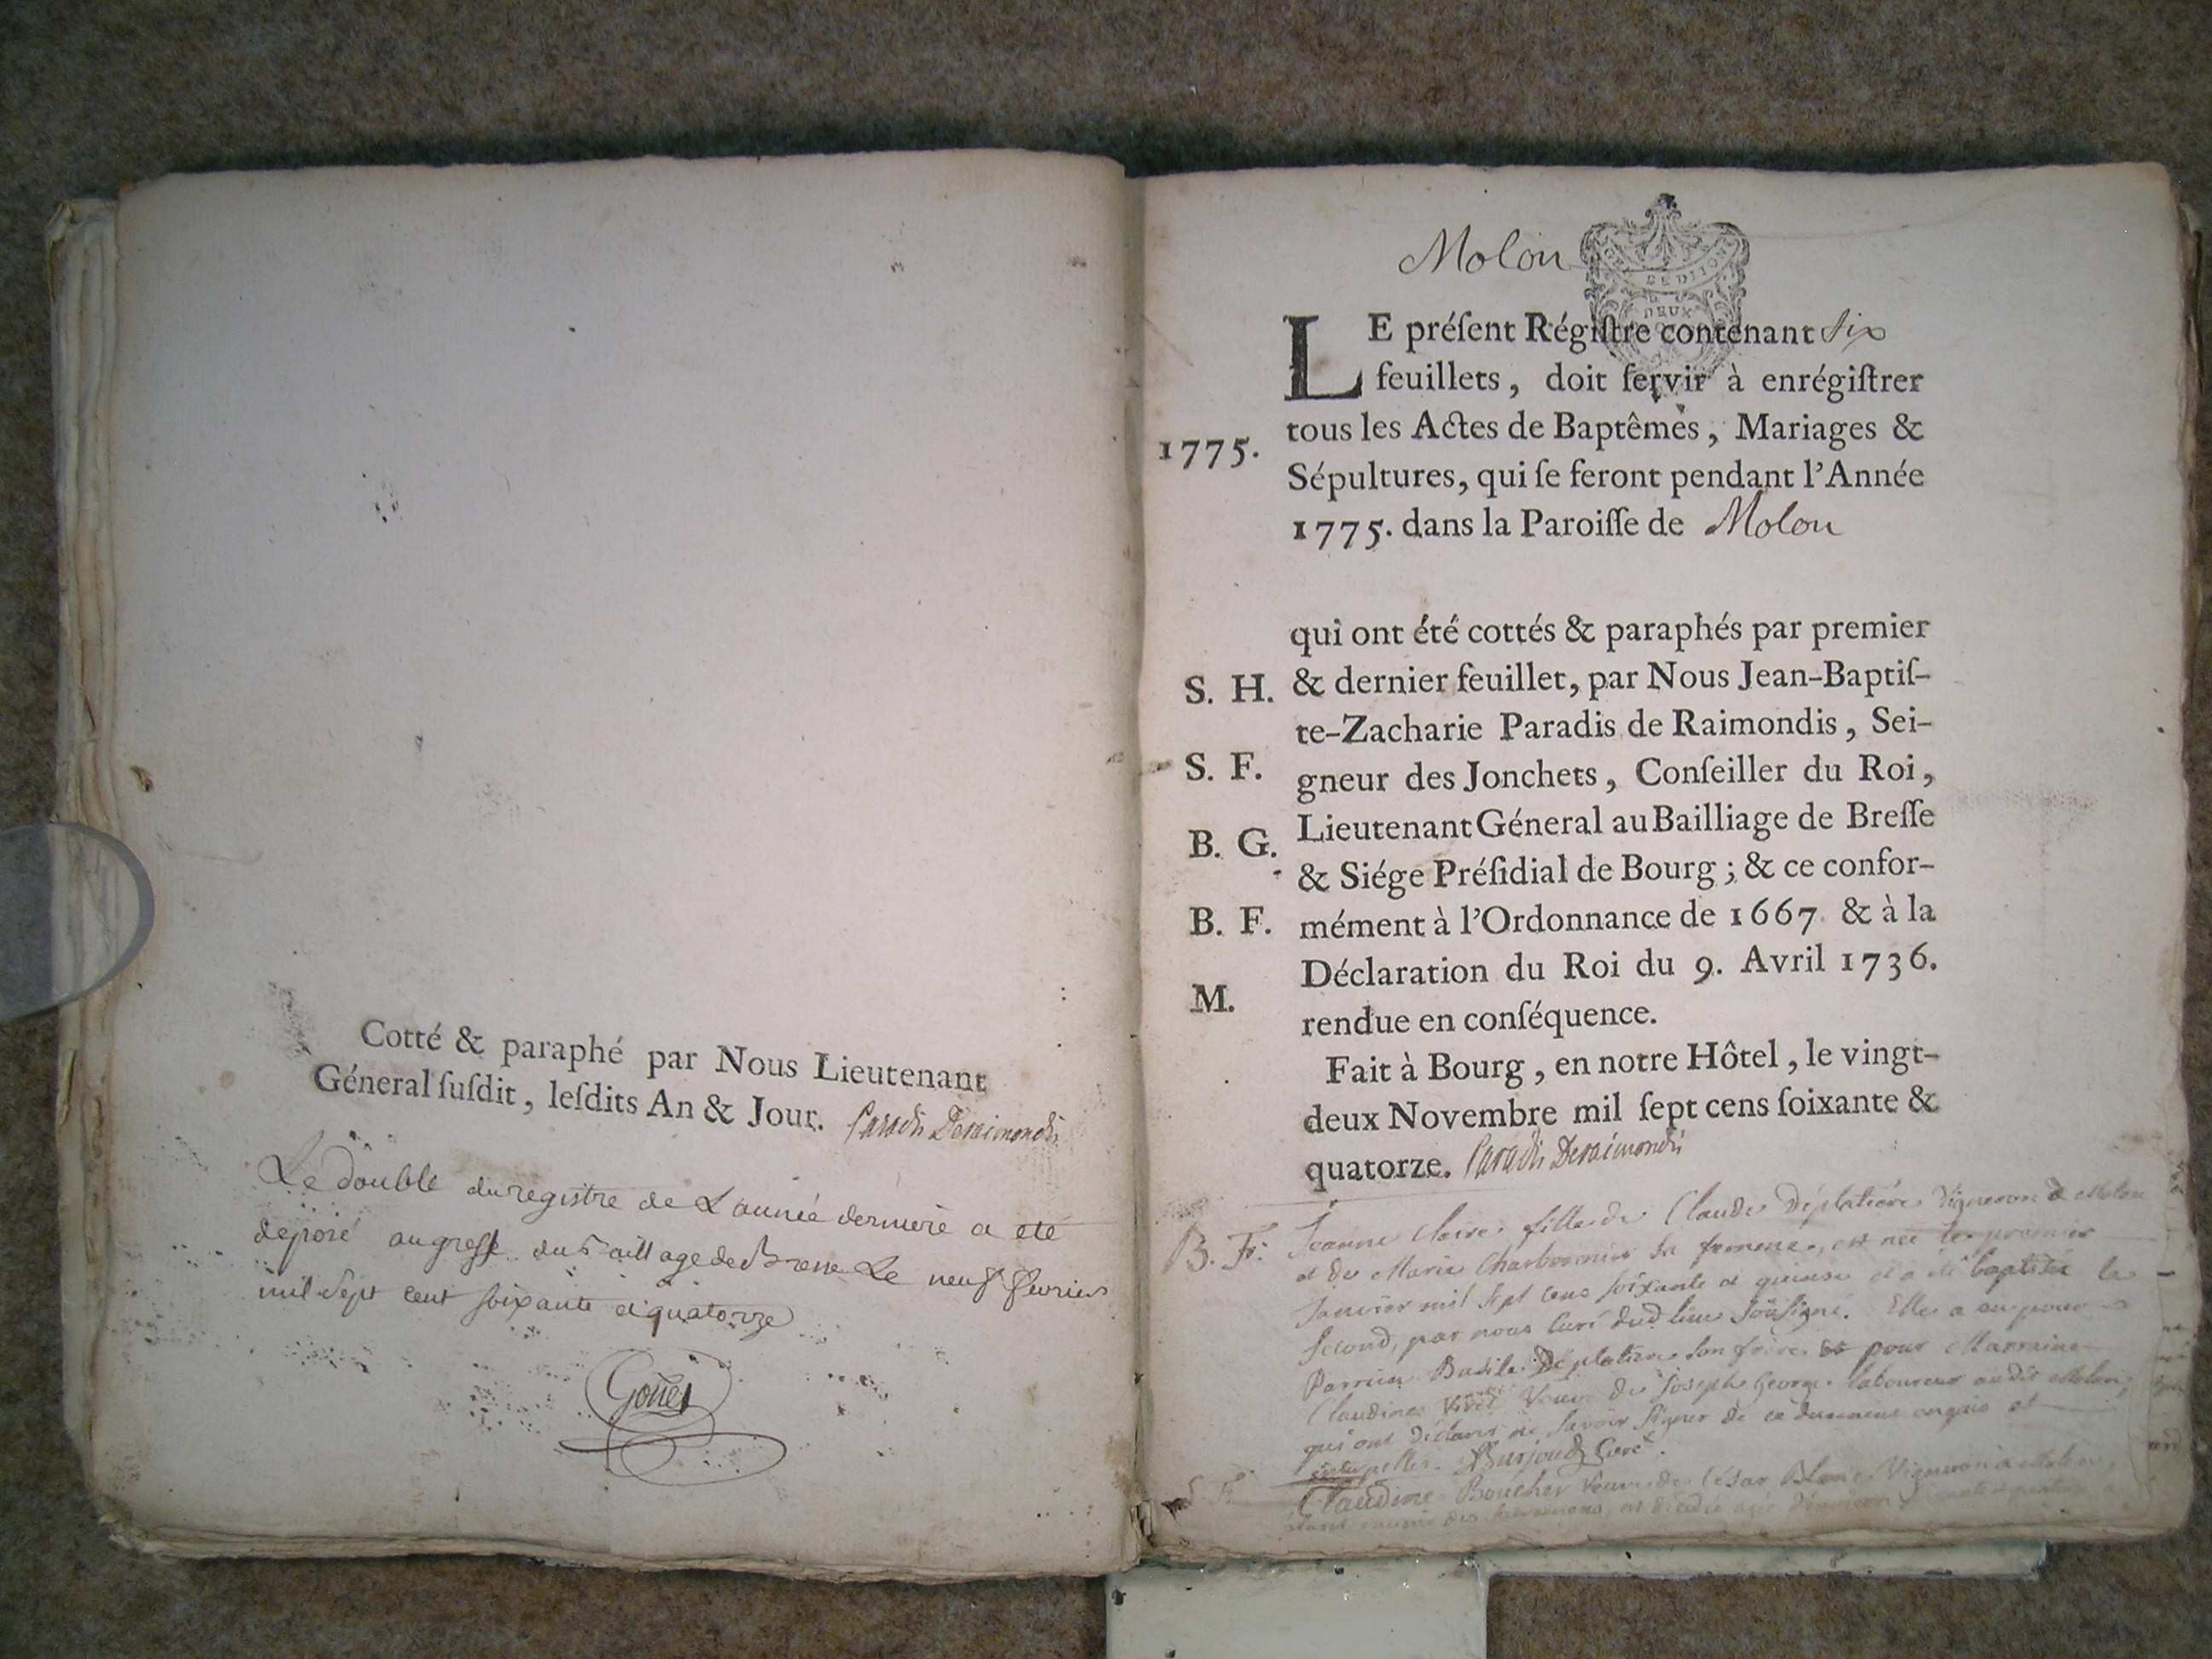 Cotté & paraphé par Nous Lieutenant
Géneral ſuſdit, leſdits An & Jour. Paradis Deraimondis
Le double du registre de L'année derniere a été
deposé au greffe du Bailliage de Bresse Le neuf fevrier
mil Sept cent soixante et quatorze
Molon
DEUX
LE préſent Régiſtre contenant six
feuillets, doit ſervir à enrégiſtrer
1775. tous les Actes de Baptêmes, Mariages &
Sépultures, qui ſe feront pendant l'Année
1775. dans la Paroiſſe de Molon
qui ont été cottés & paraphés par premier
S. H. & dernier feuillet, par Nous Jean-Baptiſ-
te-Zacharie Paradis de Raimondis, Sei-
S. F. gneur des Jonchets, Conſeiller du Roi,
Lieutenant Géneral au Bailliage de Breſſe
B. G. & Siége Préſidial de Bourg; & ce confor-
B. F. mément à l'Ordonnance de 1667 & à la
Déclaration du Roi du 9. Avril 1736.
M. rendue en conſéquence.
Fait à Bourg, en notre Hôtel, le vingt-
deux Novembre mil ſept cens ſoixante &
quatorze. Paradis Deraimondis
B. F. Jeanne Claire fille de Claude Déplatière Vigneron à Molon
et de Marie Charbonnier sa femme, est née le premier
Janvier mil sept cens soixante et quinse et a été baptisée le
second, par nous Curé dud. lieu soussigné. Elle a eu pour
Parrein Basile Déplatière son frère et pour Marraine
Claudine Veuve de Joseph George laboureur audit Molon,
qui ont déclaré ne savoir signer de ce duement enquis et
interpellés. Curé.
S. F. Claudine Boucher Veuve de César Blanc Vigneron à Molon,